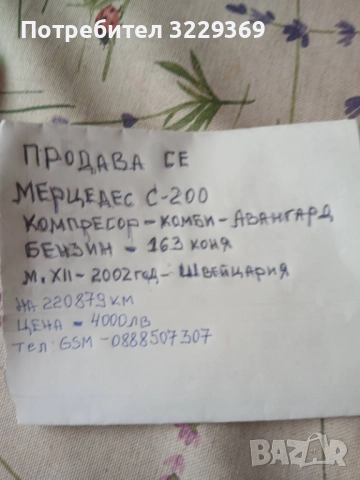 Потребител 3229369
ПРОДАВА СЕ
МЕРЦЕДЕС С-200
КОМПРЕСОР-КОМБИ-АВАНГАРД
БЕНЗИН - 163 КОНЯ
М. XII-2002 ГОД- ШВЕЙЦАРИЯ
НА 220879 КМ
ЦЕНА - 4000 ЛВ
ТЕЛ: GSM -0888507307
BAZAR